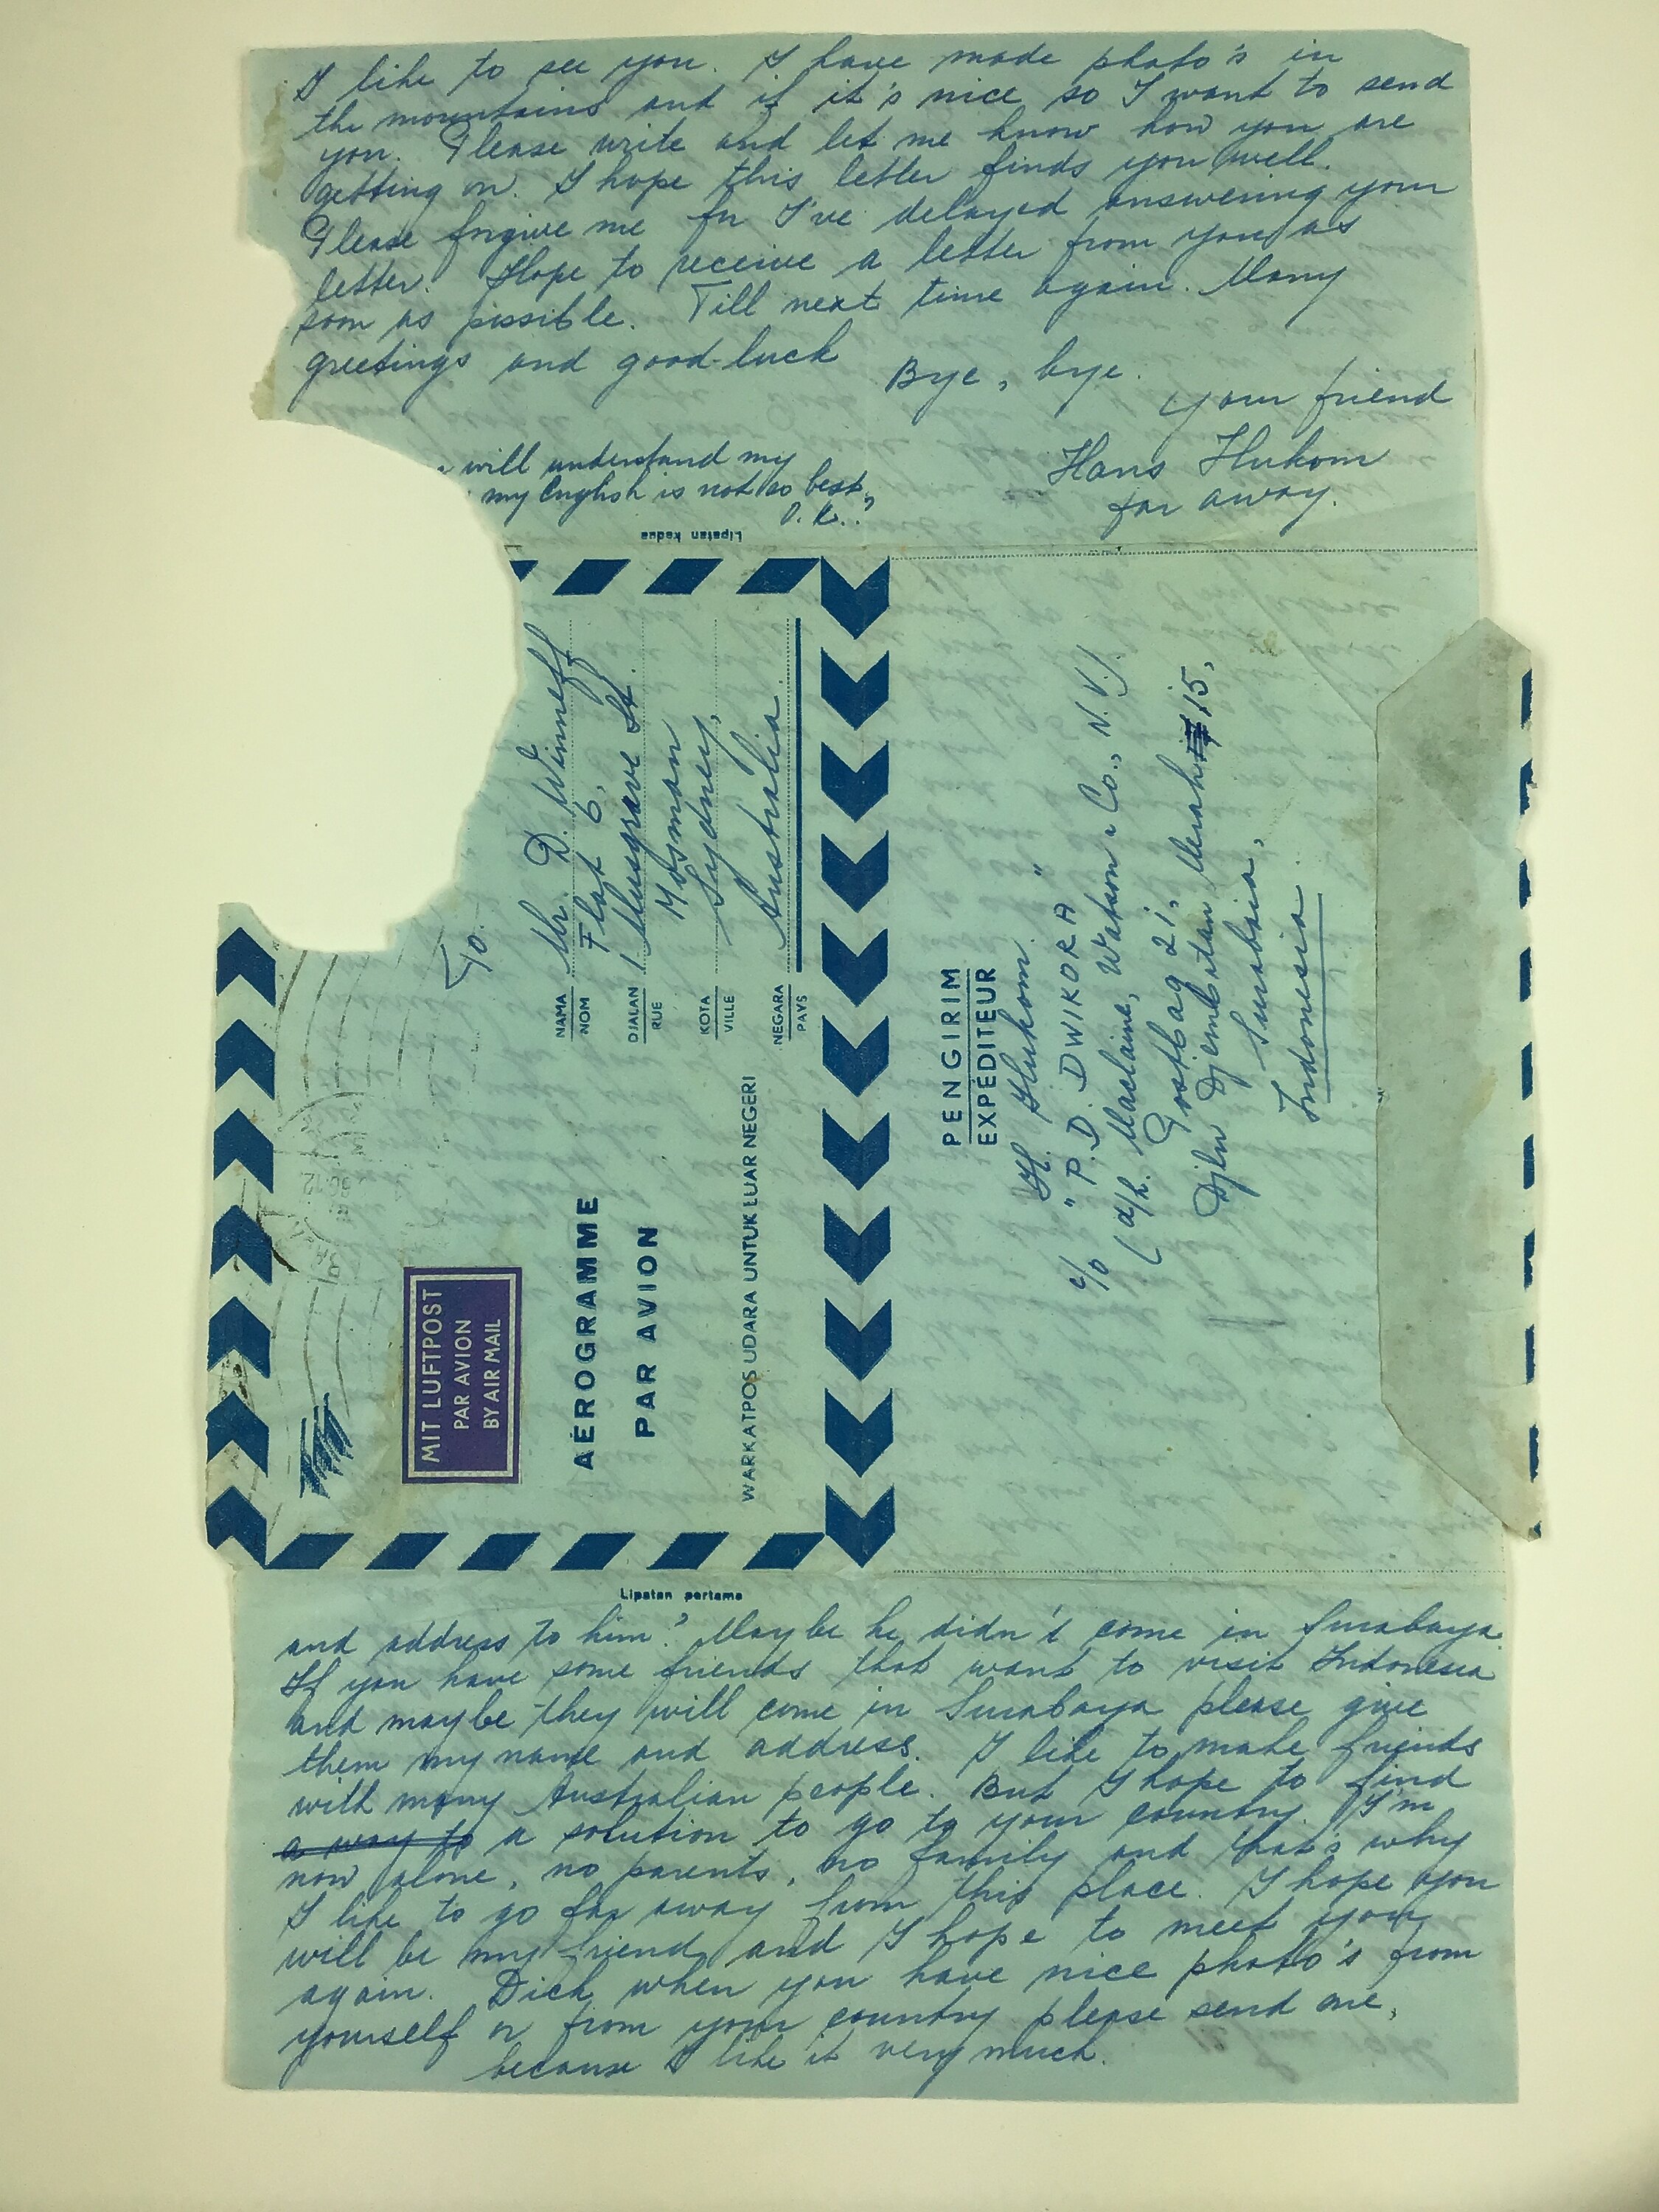 I like to see you. I have made photo's in
the mountains and if it's nice so I want to send
you. Please write and let me know how you are
getting on. I hope this letter finds you well.
Please forgive me for I've delayed answering your
letter. Hope to receive a letter from you as
soon as possible. Till next time again. Many
greetings and good-luck
Bye, bye.
Your friend
Hans Hukom
far away.
will understand my
my English is not so best,
O.K.?
Lipatan kedua
To.
NAMA
NOM
Mr. D. Winneff
Flat 6,
DJALAN
RUE
1 Musgrave St.
Mosman
KOTA
VILLE
Sydney,
NEGARA
PAYS
Australia.
MIT LUFTPOST
PAR AVION
BY AIR MAIL
AEROGRAMME
PAR AVION
WARKATPOS UDARA UNTUK LUAR NEGERI
PENGIRIM
EXPÉDITEUR
H. Hukom.
c/o "P.D. DWIKORA"
(d/h. Maclaine, Watson & Co., N.V.)
Postbag 21,
Djln Djembatan Merah 15,
Surabaia,
Indonesia.
Lipatan pertama
and address to him? Maybe he didn't come in Surabaya.
If you have some friends that want to visit Indonesia
and maybe they will come in Surabaya please give
them my name and address. I like to make friends
with many Australian people. But I hope to find
a way to a solution to go to your country. I'm
now alone, no parents, no family and that's why
I like to go far away from this place. I hope you
will be my friend and I hope to meet you
again. Dick when you have nice photo's from
yourself or from your country please send me,
because I like it very much.